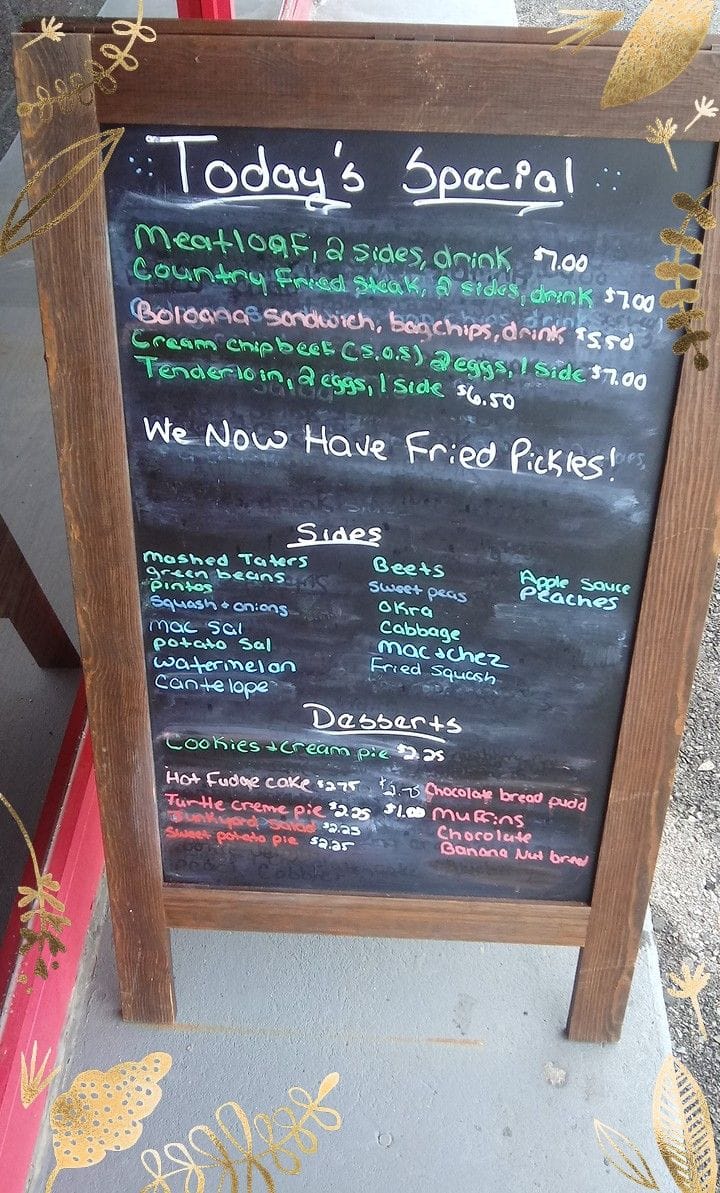 Today's Special
Meatloaf, 2 sides, drink $7.00
Country Fried Steak, 2 sides, drink $7.00
Boloana sandwich, bag chips, drink $5.50
Cream chip beef (S.O.S) 2 eggs, 1 side $7.00
Tenderloin, 2 eggs, 1 side $6.50
We Now Have Fried Pickles!
Sides
Mashed Taters
green beans
pintos
Squash + onions
mac sal
potato sal
watermelon
Cantelope
Beets
sweet peas
OKra
Cabbage
mac + chez
Fried Squash
Apple Sauce
Peaches
Desserts
Cookies + cream pie $2.25
Hot Fudge cake $2.75
Turtle creme pie $2.25
Junkyard Salad $2.25
Sweet potato pie $2.25
$2.75 Chocolate bread pudd
$1.00 Muffins
Chocolate
Banana Nut bread